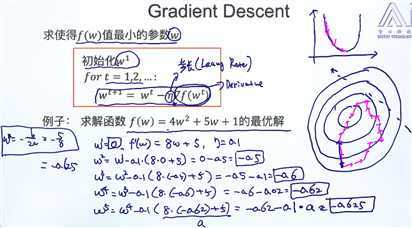 Gradient Descent
求使得f(w)值最小的参数w
初始化w¹
for t = 1,2,…:
w^{t+1} = w^t − η f'(w^t)
步长 (Learning Rate)
Derivative
例子： 求解函数 f(w) = 4w² + 5w + 1的最优解
w* = -b/2a = -5/8
= -0.625
w¹=0, f'(w) = 8w+5, η=0.1
w²= w¹-0.1(8·0+5) = 0-0.5 = -0.5
w³= w²-0.1(8·(-0.5)+5) = -0.5-0.1 = -0.6
w⁴= w³-0.1(8·(-0.6)+5) = -0.6-0.02 = -0.62
w⁵= w⁴-0.1(8·(-0.62)+5) = -0.62-0.1·0.